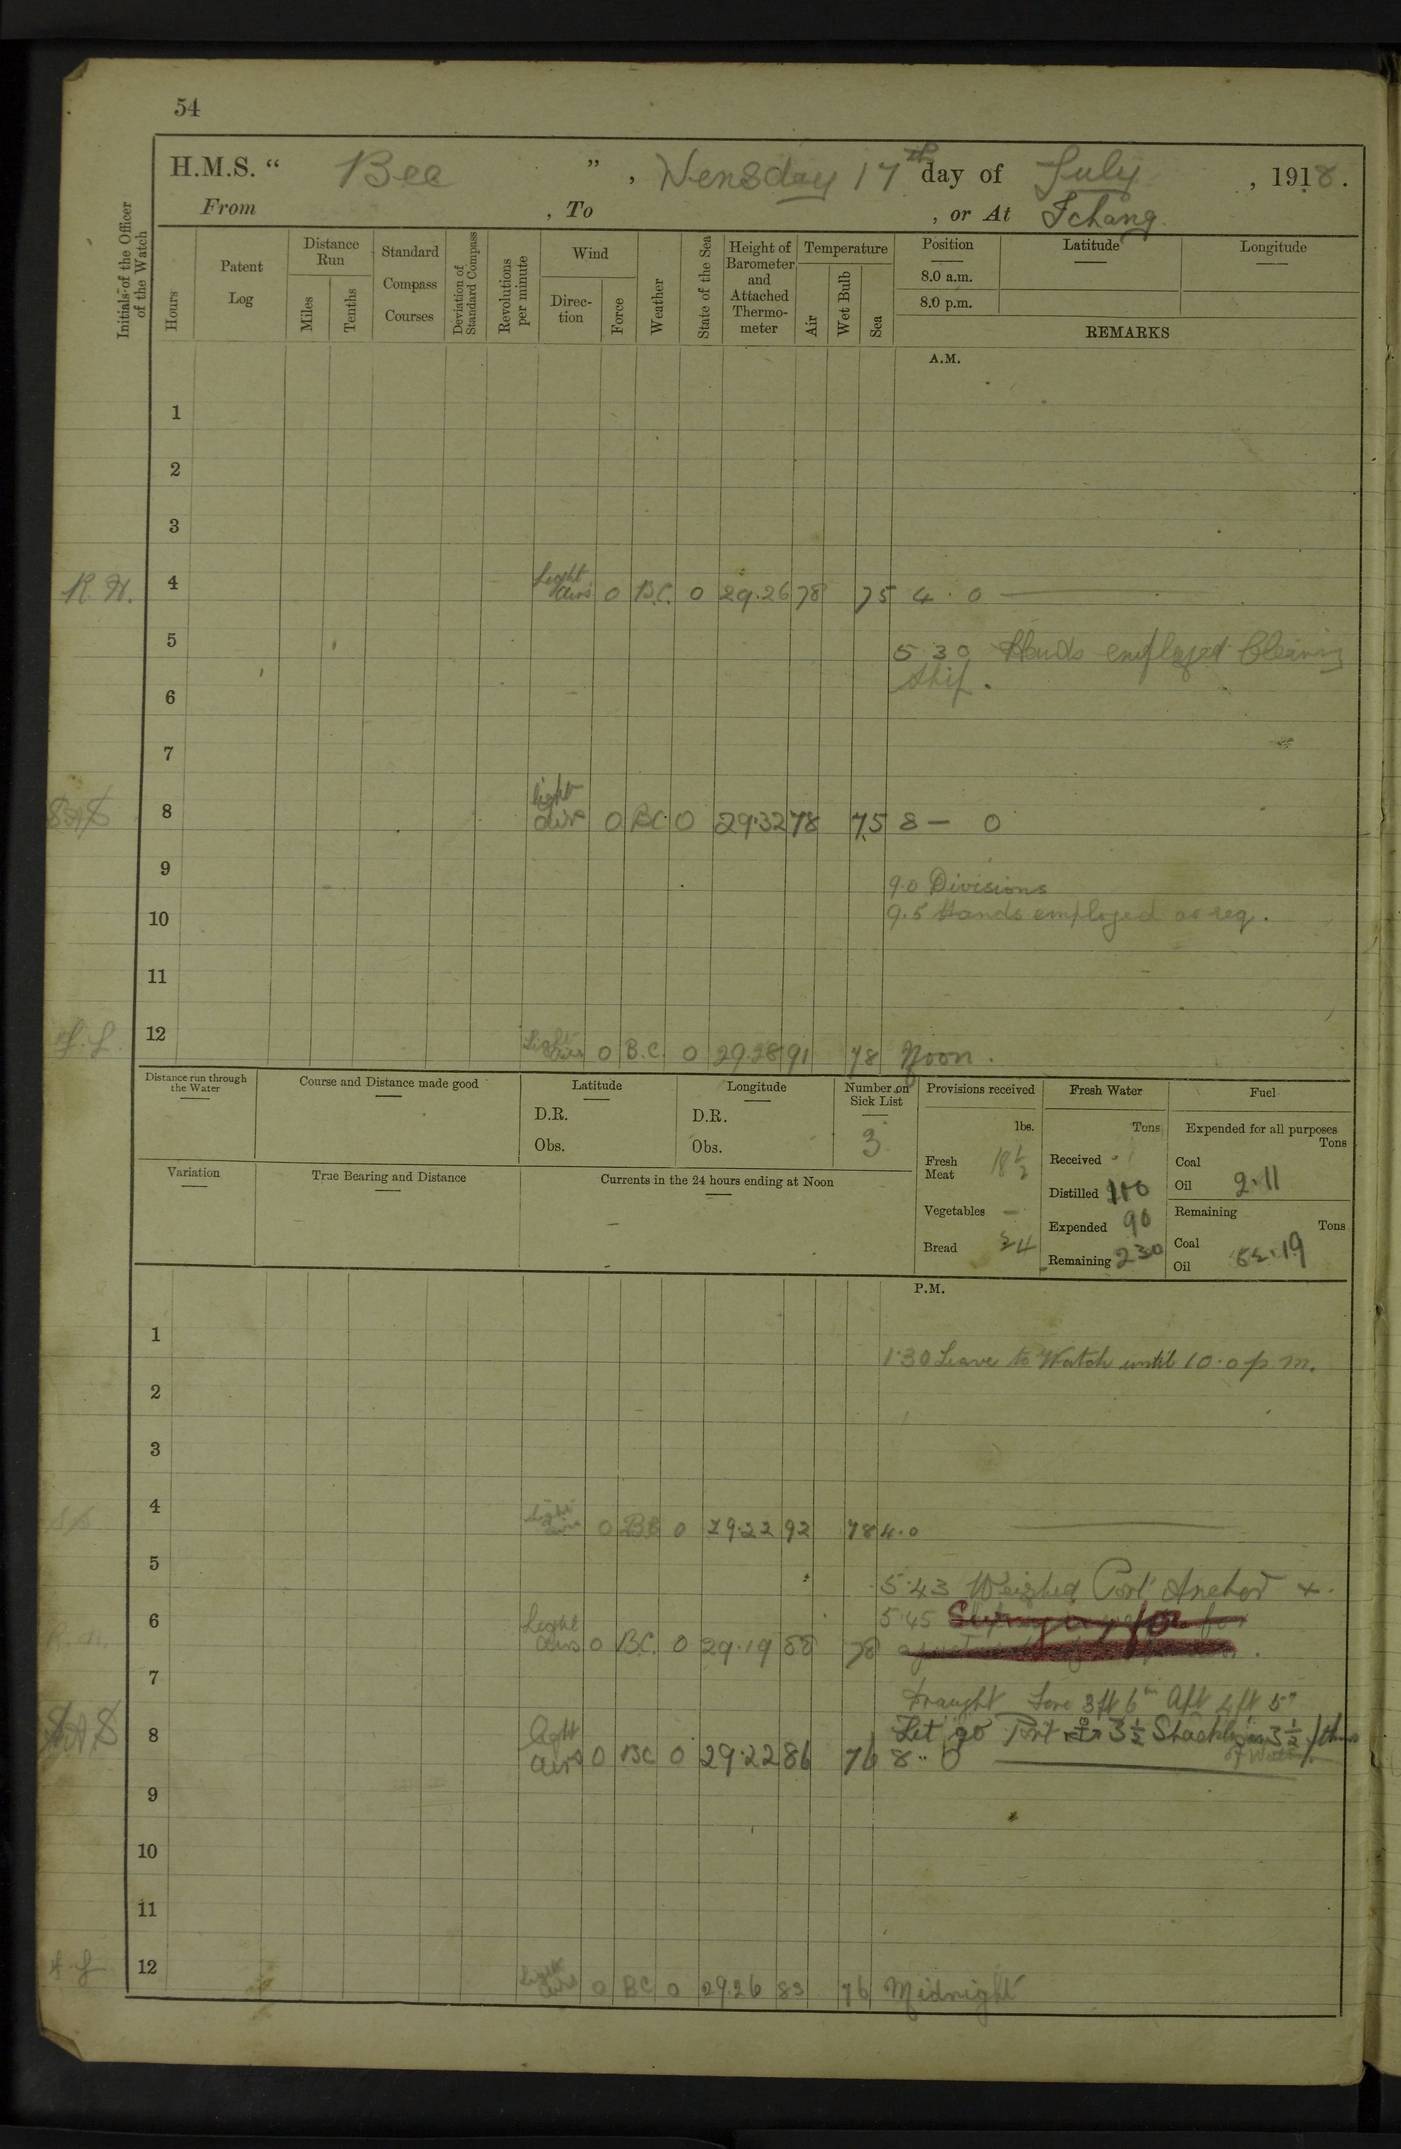 54
H.M.S. “ Bee ” , Wensday 17th day of July , 1918 .
From , To , or At Ichang
Initials of the Officer of the Watch
Hours
Patent Log
Distance Run
Miles
Tenths
Standard Compass Courses
Deviation of Standard Compass
Revolutions per minute
Wind
Direc-tion
Force
Weather
State of the Sea
Height of Barometer and Attached Thermo-meter
Temperature
Air
Wet Bulb
Sea
Position Latitude Longitude
8.0 a.m.
8.0 p.m.
REMARKS
A.M.
1
2
3
R. H. 4 Light airs 0 B.C. 0 29.26 78 75 4 . 0
5 5 30 Hands employed Cleaning
6 Ship .
7
8 light airs 0 BC 0 29.32 78 75 8 — 0
9 9.0 Divisions
10 9.5 Hands employed as req .
11
12 Light airs 0 B.C. 0 29.28 91 78 Noon .
Distance run through the Water
Course and Distance made good
Latitude
D.R.
Obs.
Longitude
D.R.
Obs.
Number on Sick List
3
Provisions received
lbs.
Fresh Meat 18 1/2
Vegetables —
Bread 24
Fresh Water
Tons
Received
Distilled 100
Expended 90
Remaining 230
Fuel
Expended for all purposes
Tons
Coal
Oil 2.11
Remaining
Tons
Coal
Oil 52.19
Variation
True Bearing and Distance
Currents in the 24 hours ending at Noon
P.M.
1 1.30 Leave to Watch until 10.0 p.m.
2
3
4 Light airs 0 BC 0 29.22 92 78 4.0
5 5.43 Weighed Port Anchor +.
6 Light airs 0 B.C. 0 29.19 88 78 5.45
7 Draught Fore 3ft 6in Aft 4ft 5"
8 light airs 0 BC 0 29.22 86 76 Let go Port 3 1/2 Shackles in 3 1/2 fths of Water
8 .. 0
9
10
11
12 Light airs 0 BC 0 29.26 83 76 Midnight